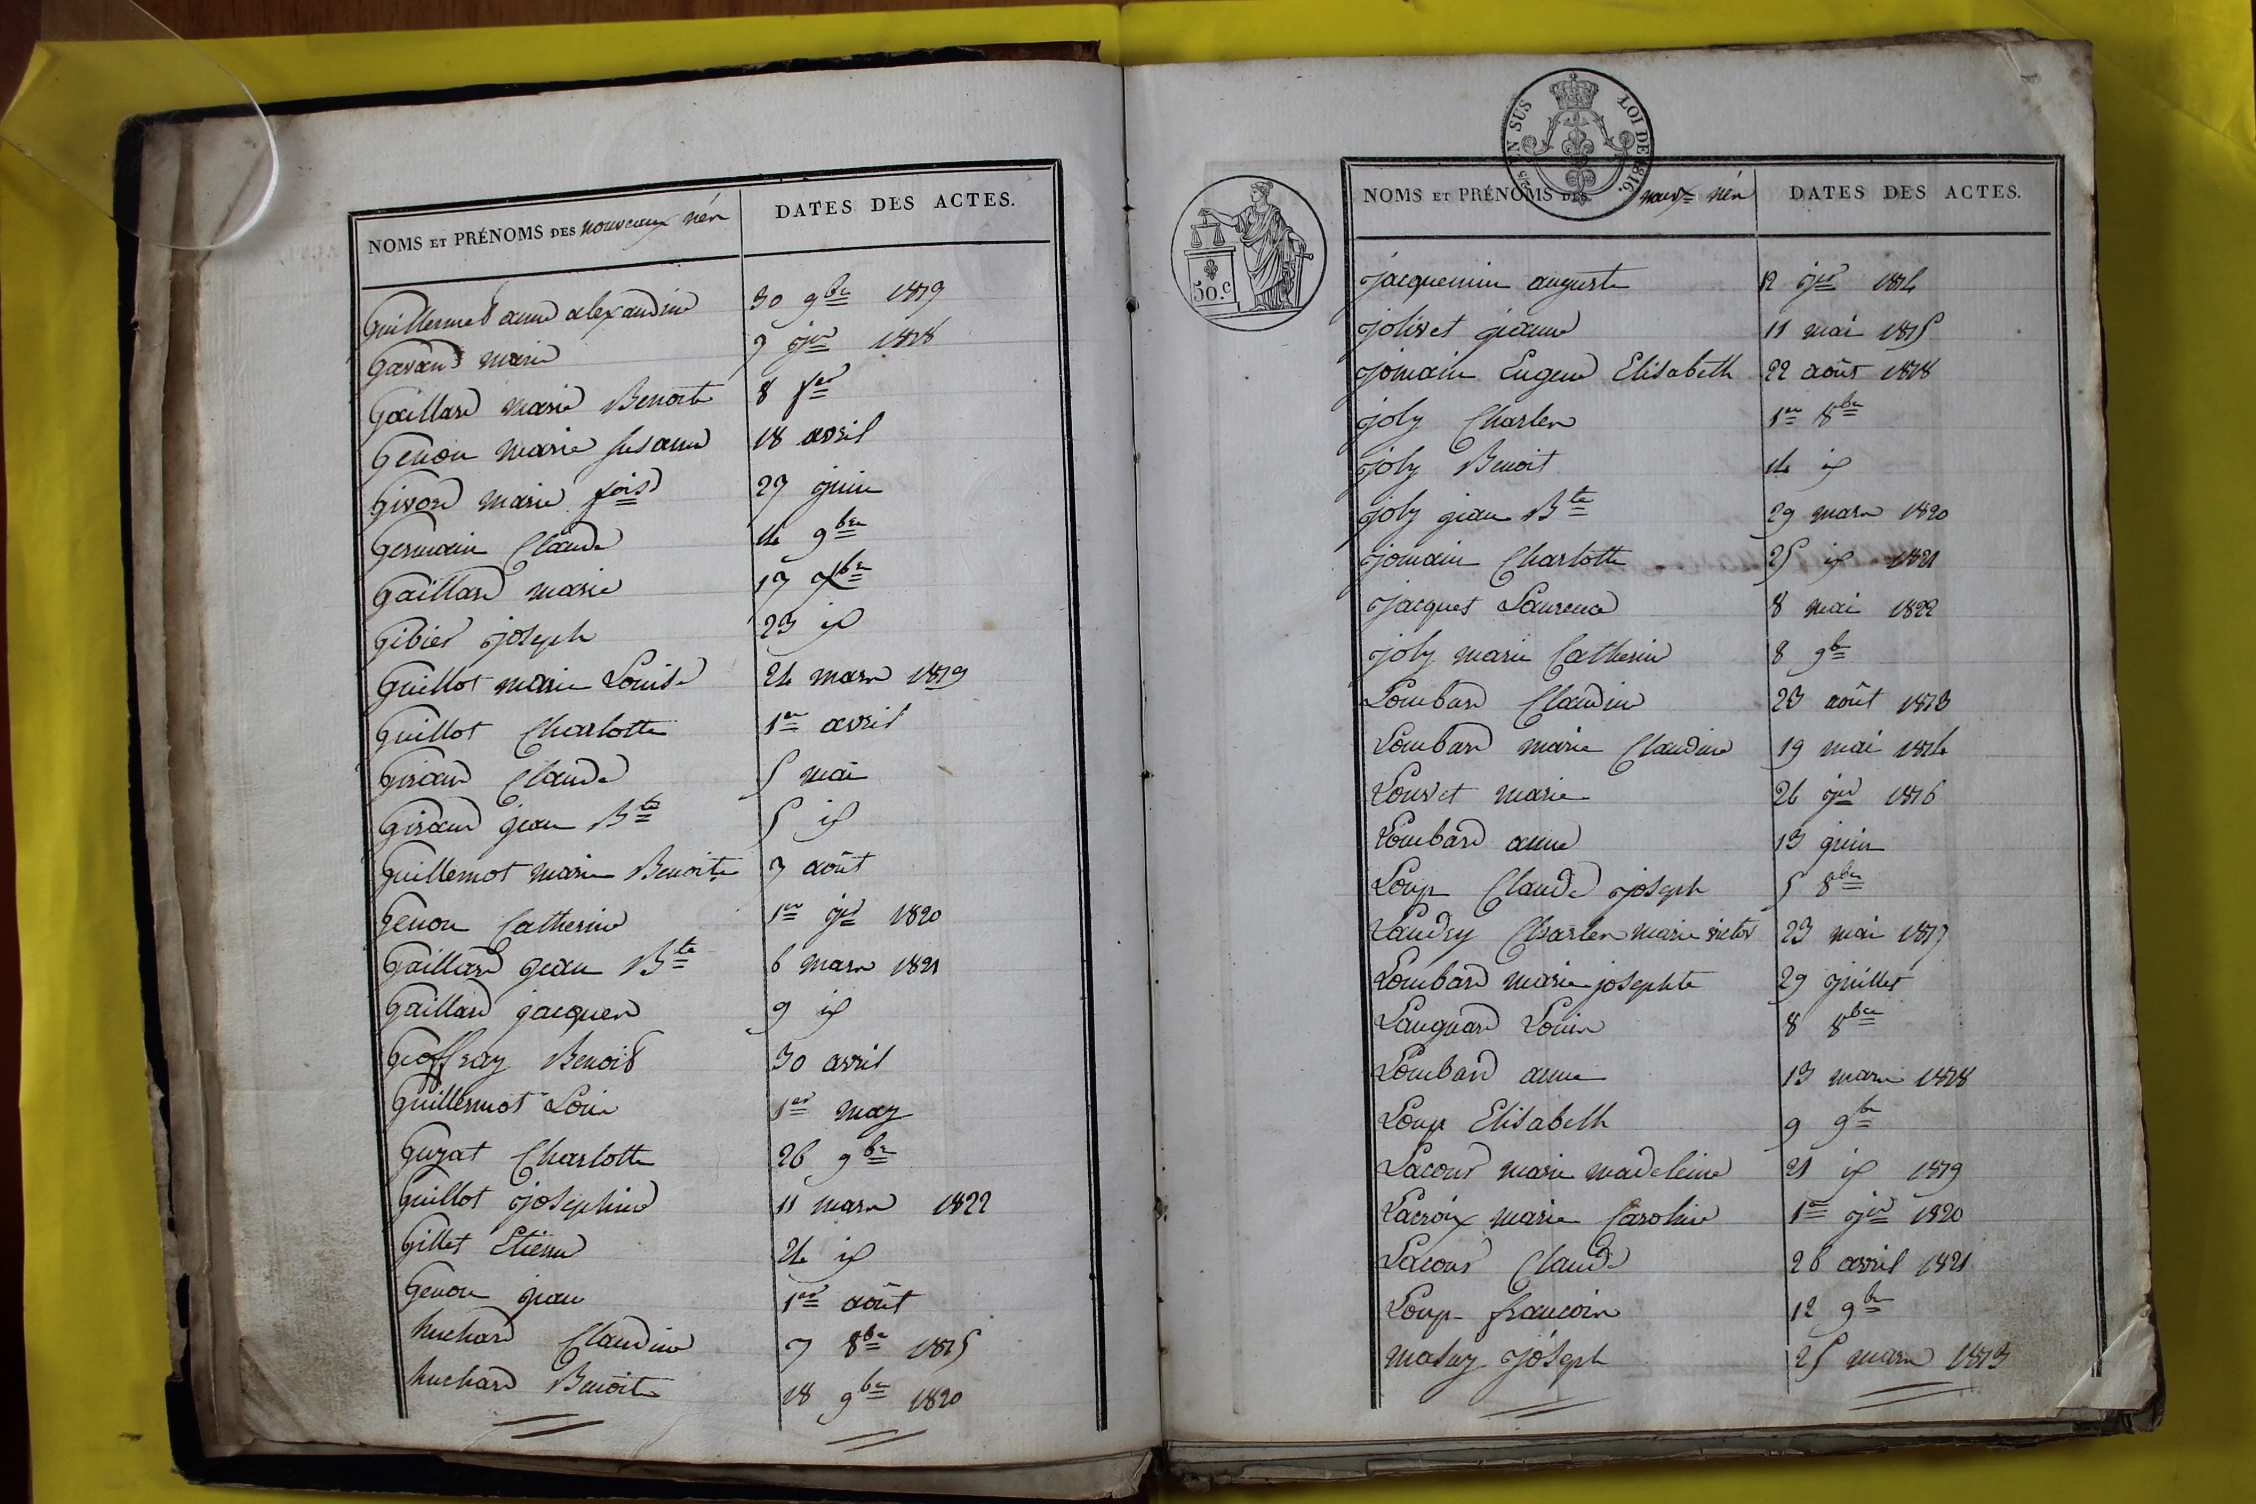 NOMS ET PRÉNOMS DES nouveaux nés
DATES DES ACTES.
Guillermet anne alexandrine 30 9bre 1817
Gavand marie 7 jer 1818
Gaillard marie Benoite 8 fer
Genon marie susanne 18 avril
Givord marie foise 27 juin
Germain Claude 14 9bre
Gaillard marie 17 Xbre
Gibier joseph 23 id
Guillot marie Louise 24 mars 1819
Guillot Charlotte 1er avril
Giraud Claude 5 mai
Giraud jean Bte 5 id
Guillermot marie Benoite 7 août
Genon Catherine 1er jer 1820
Gaillard jean Bte 6 mars 1821
Gaillard jacques 9 id
Geoffray Benoit 30 avril
Guillermot Louis 1er may
Guyat Charlotte 26 9bre
Guillot josephine 11 mars 1822
Gillet Etienne 24 id
Genon jean 1er août
huchard Claudine 7 8bre 1815
huchard Benoite 18 9bre 1820
TIMB. EN SUS LOI DE 1816.
50.c
NOMS ET PRÉNOMS DES nouvx nés
DATES DES ACTES.
jacquemin auguste 12 jer 1814
jolivet jeanne 11 mai 1815
jomain Eugene Elisabeth 22 août 1818
joly Charles 1er 8bre
joly Benoit 14 id
joly jean Bte 29 mars 1820
jomain Charlotte 25 id 1821
jacquet Laurence 8 mai 1822
joly marie Catherine 8 9bre
Lombard Claudine 23 août 1813
Lombard marie Claudine 19 mai 1814
Louvet marie 26 jer 1816
Lombard anne 13 juin
Loup Claude joseph 5 8bre
Landry Charles marie victor 23 mai 1817
Lombard marie josephte 29 juillet
Languard Louis 8 8bre
Lombard anne 13 mars 1818
Loup Elisabeth 9 9bre
Lacour marie madeleine 21 id 1819
Lacroix marie Caroline 1er jer 1820
Lacour Claude 26 avril 1821
Loup francois 12 9bre
masuy joseph 25 mars 1813